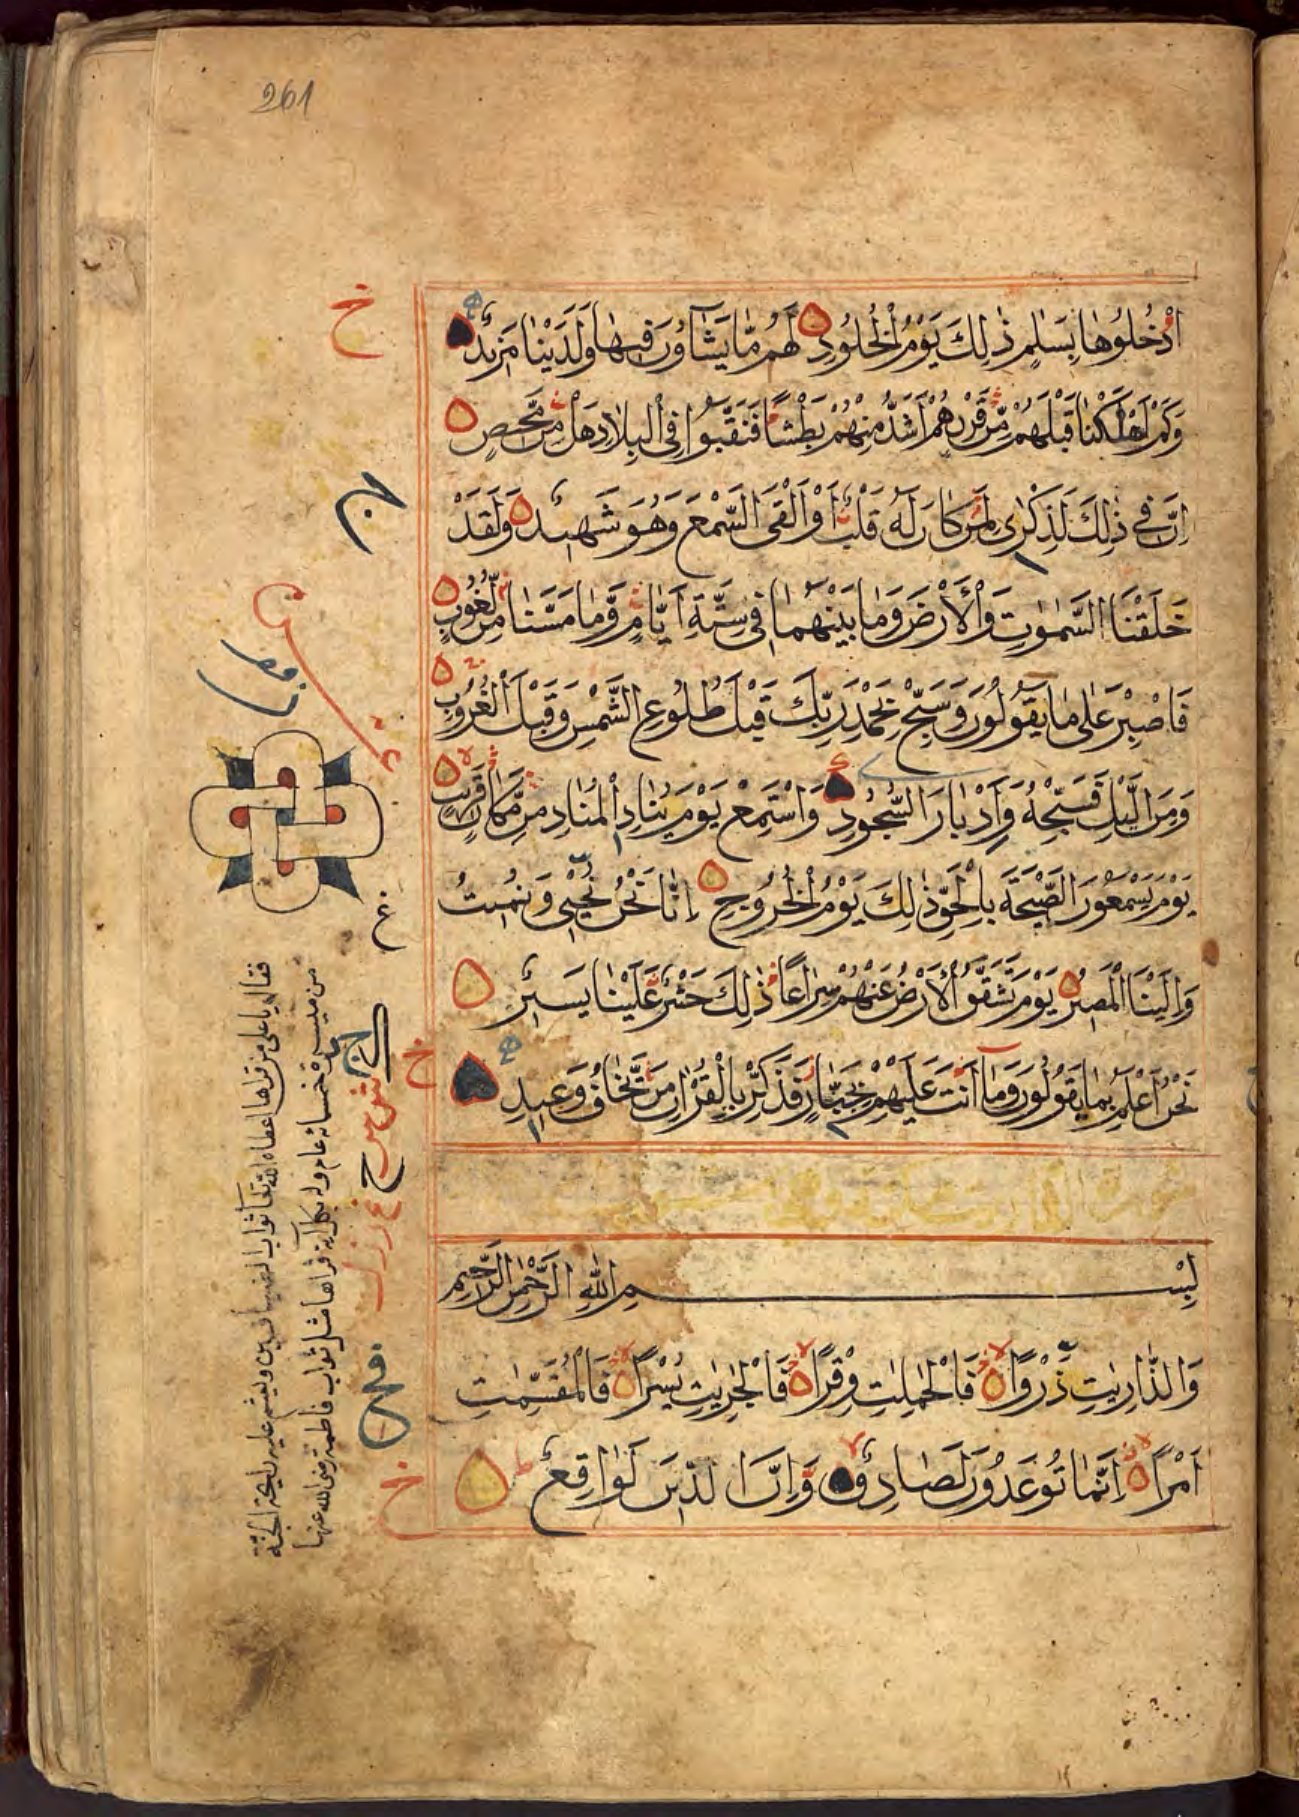 261
ادْخُلُوهَا بِسَلٰمٍ ذٰلِكَ يَوْمُ الْخُلُودِ لَهُمْ مَّا يَشَاؤُنَ فِيهَا وَلَدَيْنَا مَزِيدٌ
وَكَمْ اَهْلَكْنَا قَبْلَهُمْ مِّنْ قَرْنٍ هُمْ اَشَدُّ مِنْهُمْ بَطْشًا فَنَقَّبُوا فِى الْبِلَادِ هَلْ مِنْ مَّحِيصٍ
اِنَّ فِى ذٰلِكَ لَذِكْرٰى لِمَنْ كَانَ لَهُ قَلْبٌ اَوْ اَلْقَى السَّمْعَ وَهُوَ شَهِيدٌ وَلَقَدْ
خَلَقْنَا السَّمٰوٰتِ وَالْاَرْضَ وَمَا بَيْنَهُمَا فِى سِتَّةِ اَيَّامٍ وَّمَا مَسَّنَا مِنْ لُّغُوبٍ
فَاصْبِرْ عَلٰى مَا يَقُولُونَ وَسَبِّحْ بِحَمْدِ رَبِّكَ قَبْلَ طُلُوعِ الشَّمْسِ وَقَبْلَ الْغُرُوبِ
وَمِنَ الَّيْلِ فَسَبِّحْهُ وَاَدْبَارَ السُّجُودِ وَاسْتَمِعْ يَوْمَ يُنَادِ الْمُنَادِ مِنْ مَّكَانٍ قَرِيبٍ
يَوْمَ يَسْمَعُونَ الصَّيْحَةَ بِالْحَقِّ ذٰلِكَ يَوْمُ الْخُرُوجِ اِنَّا نَحْنُ نُحْيِى وَنُمِيتُ
وَاِلَيْنَا الْمَصِيرُ يَوْمَ تَشَقَّقُ الْاَرْضُ عَنْهُمْ سِرَاعًا ذٰلِكَ حَشْرٌ عَلَيْنَا يَسِيرٌ
نَحْنُ اَعْلَمُ بِمَا يَقُولُونَ وَمَا اَنْتَ عَلَيْهِمْ بِجَبَّارٍ فَذَكِّرْ بِالْقُرْاٰنِ مَنْ يَّخَافُ وَعِيدِ
بِسْمِ اللّٰهِ الرَّحْمٰنِ الرَّحِيمِ
وَالذَّارِيٰتِ ذَرْوًا فَالْحٰمِلٰتِ وِقْرًا فَالْجٰرِيٰتِ يُسْرًا فَالْمُقَسِّمٰتِ
اَمْرًا اِنَّمَا تُوعَدُونَ لَصَادِقٌ وَاِنَّ الدِّينَ لَوَاقِعٌ
فقال يا على من قراها اعطاه الله تعالى ثواب
من مسيرة خمسمائة عام وله بكل اية قراها مثل ثواب فاطمة رضى الله عنها